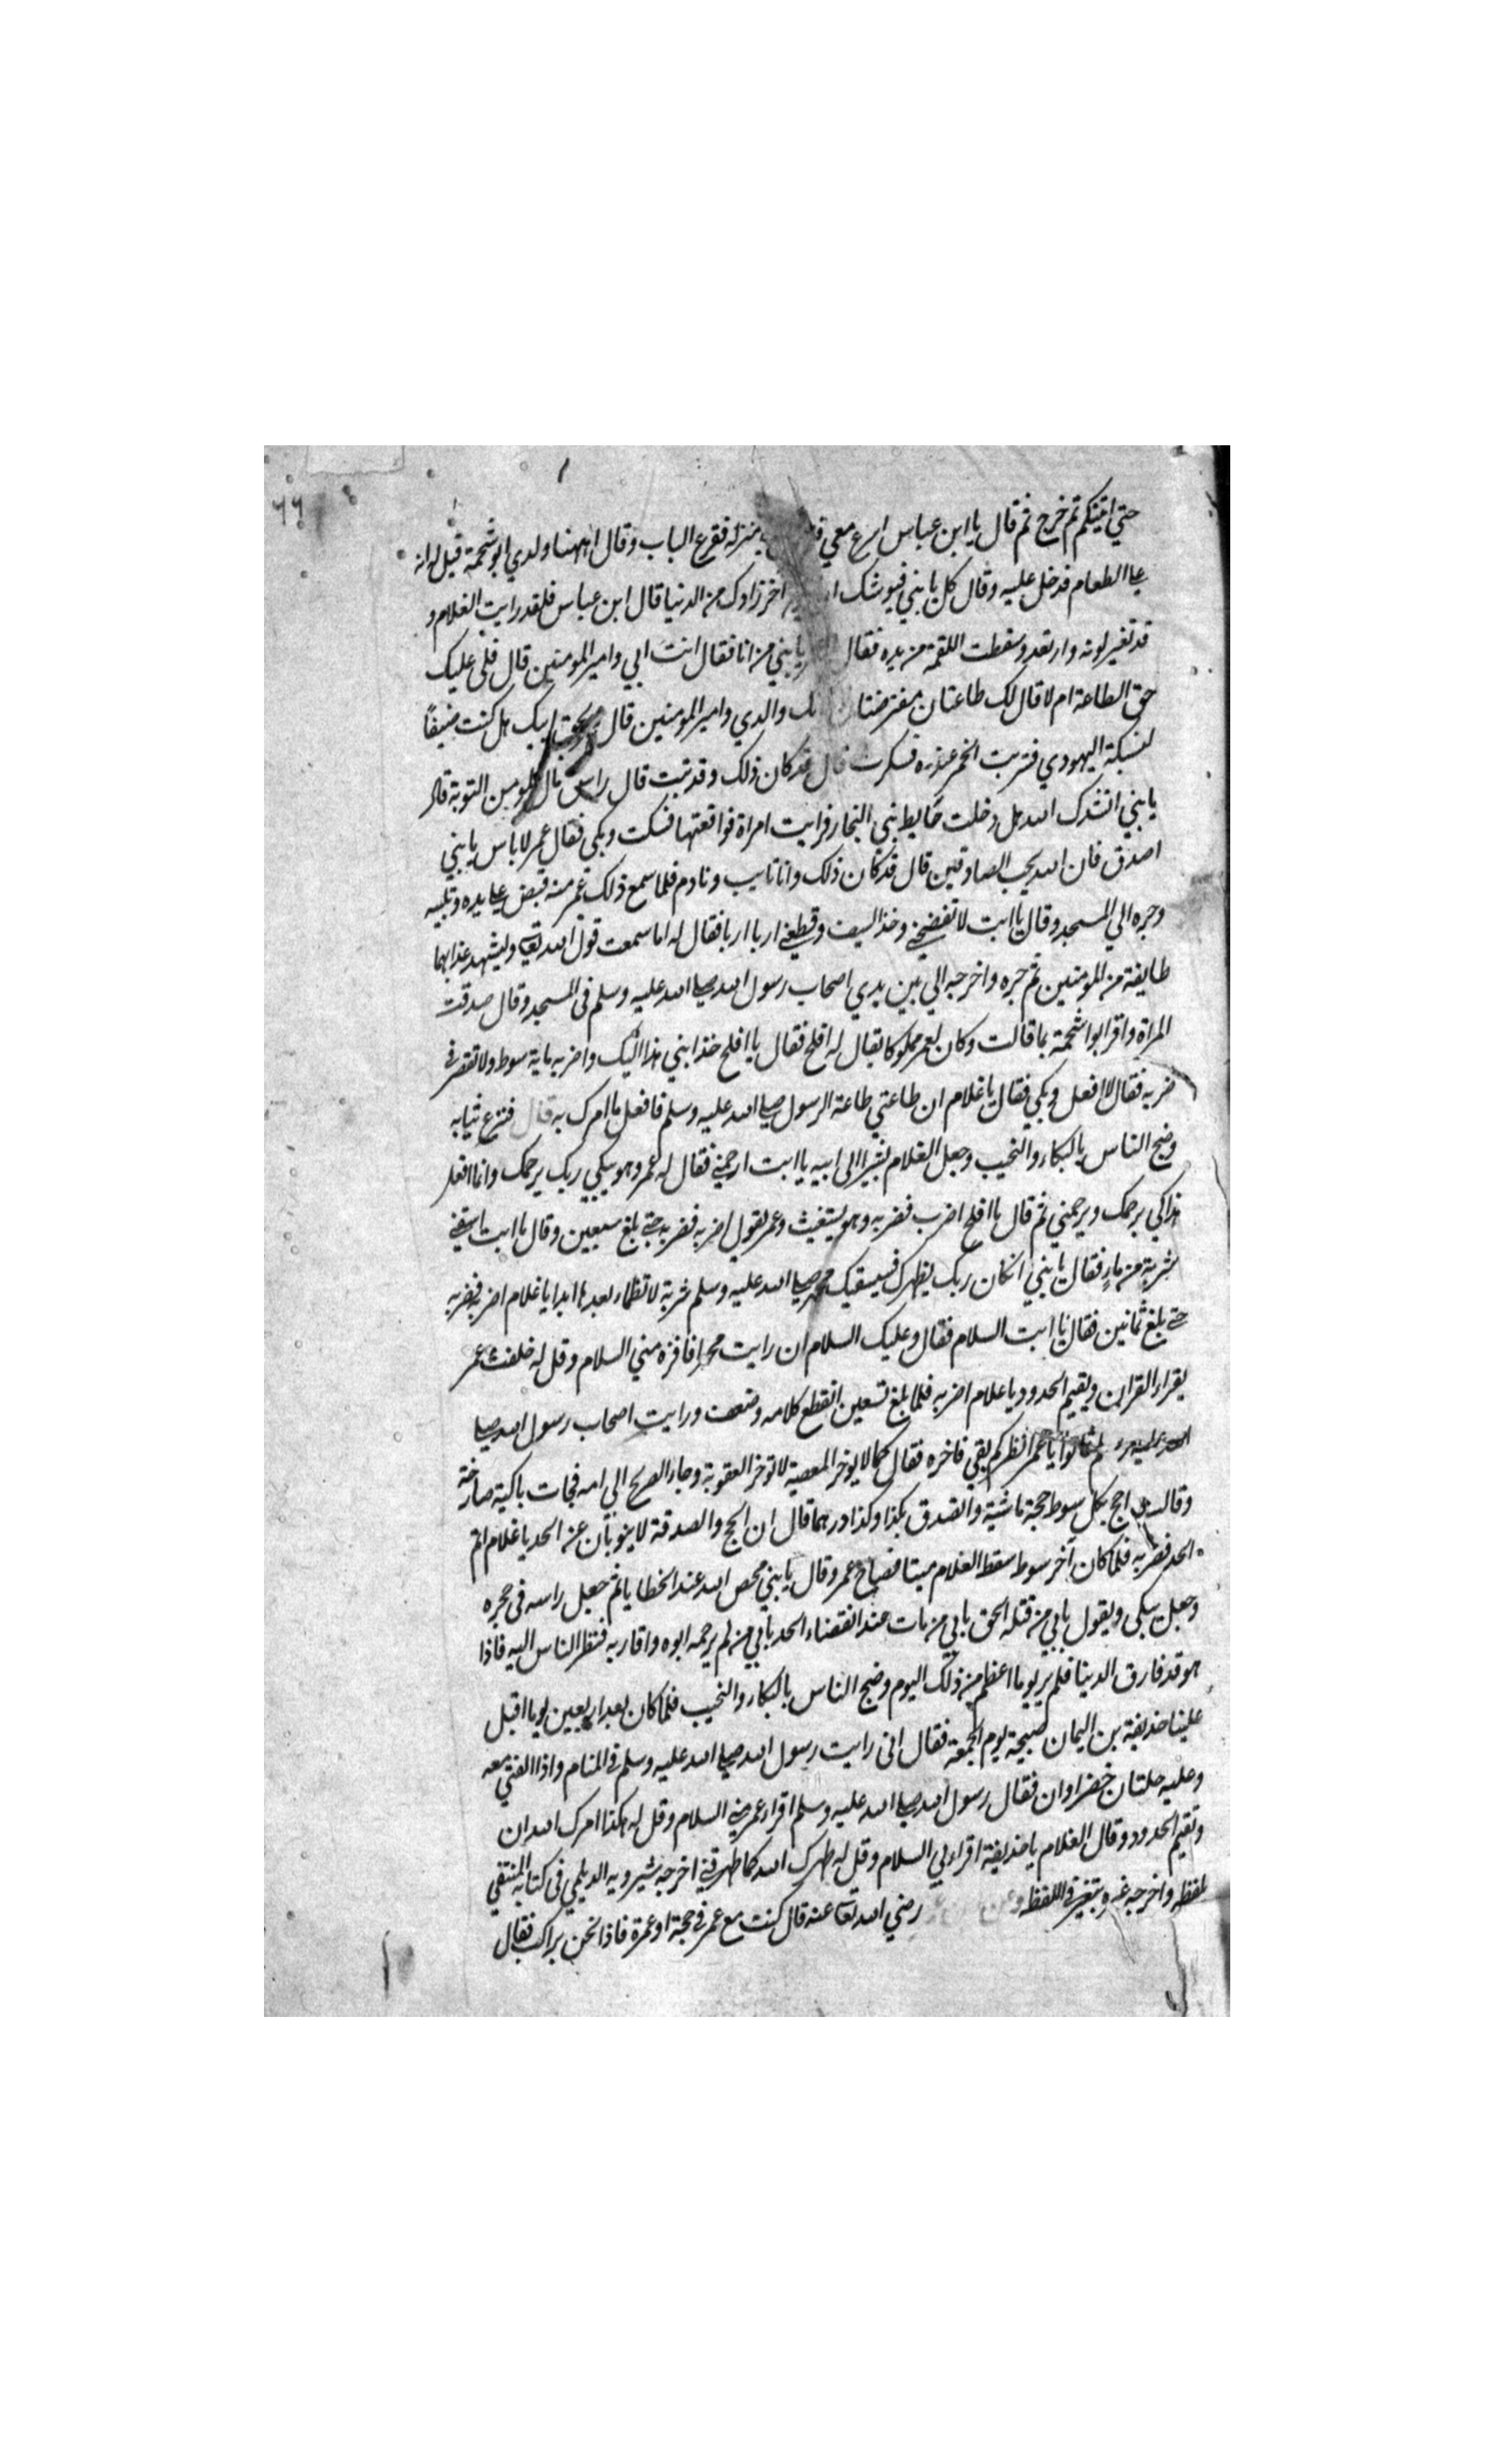 ٦٦
حتي اتيتكم ثم خرج ثم قال يا ابن عباس اسرع معي منزله فقرع الباب وقال اههنا ولدي ابو شحمة قيل له انه
علي الطعام فدخل عليه وقال كل يا بني فيوشك اخر زادك من الدنيا قال ابن عباس فلقد رايت الغلام و
قد تغير لونه وارتعد وسقطت اللقمة من يده فقال يا بني من انا فقال انت ابي وامير المومنين قال فلي عليك
حق الطاعة ام لا قال لك طاعتان مفترضتان والدي وامير المومنين قال بحق ابيك هل كنت ضيفا
لنسيكة اليهودي فشربت الخمر عنده فسكرت قال قد كان ذلك وقد تبت قال راس مال المومنين التوبة قال
يا بني انشدك الله هل دخلت حايط بني النجار فرايت امراة فواقعتها فسكت وبكي فقال عمر لا باس يا بني
اصدق فان الله يحب الصادقين قال قد كان ذلك وانا تايب ونادم فلما سمع ذلك عمر منه قبض علي يده ولببه
وجره الي المسجد وقال يا ابت لا تفضحني وخذ السيف وقطعني اربا اربا فقال له اما سمعت قول الله تعا وليشهد عذابهما
طايفة من المومنين ثم جره واخرجه الي بين يدي اصحاب رسول الله صلي الله عليه وسلم في المسجد وقال صدقت
المراة واقر ابو شحمة بما قالت وكان لعمر مملوكا يقال له افلح فقال يا افلح خذ ابني هذا اليك واضربه ماية سوط ولا تقصر في
ضربه فقال لا افعل وبكي فقال يا غلام ان طاعتي طاعة الرسول صلي الله عليه وسلم فافعل ما امرك به قال فنزع ثيابه
وضج الناس بالبكاء والنحيب وجعل الغلام يشير الي ابيه يا ابت ارحمني فقال له عمر وهو يبكي ربك يرحمك وانما افعل
هذا كي يرحمك ويرحمني ثم قال يا افلح اضرب فضربه وهو يستغيث وعمر يقول اضربه فضربه حتي بلغ سبعين وقال يا ابت اسقني
شربة من ماء فقال يا بني ان كان ربك يطهرك فيسقيك محمد صلي الله عليه وسلم شربة لا تظماء بعدها ابدا يا غلام اضربه فضربه
حتي بلغ ثمانين فقال يا ابت السلام فقال وعليك السلام ان رايت محمدا فاقره مني السلام وقل له خلفت عمر
يقراء القران ويقيم الحدود يا غلام اضربه فلما بلغ تسعين انقطع كلامه وضعف ورايت اصحاب رسول الله صلي
الله عليه وسلم قالوا يا عمر انظر كم بقي فاخره فقال كما لا يوخر المعصية لا توخر العقوبة وجاء الصريخ الي امه فجات باكية صارخة
وقالت احج بكل سوط حجة ماشية واتصدق بكذا وكذا درهما قال ان الحج والصدقة لا ينوبان عن الحد يا غلام اتم
الحد فضربه فلما كان آخر سوط سقط الغلام ميتا فصاح عمر وقال يا بني محص الله عنك الخطايا ثم جعل راسه في حجره
وجعل يبكي ويقول بابي من قتله الحق بابي من مات عند انقضاء الحد بابي من لم يرحمه ابوه واقاربه فنظر الناس اليه فاذا
هو قد فارق الدنيا فلم ير يوما اعظم من ذلك اليوم وضج الناس بالبكاء والنحيب فلما كان بعد اربعين يوما اقبل
علينا حذيفة بن اليمان صبيحة يوم الجمعة فقال اني رايت رسول الله صلي الله عليه وسلم في المنام واذا الفتي معه
وعليه حلتان خضراوان فقال رسول الله صلي الله عليه وسلم اقراء عمر مني السلام وقل له هكذا امرك الله ان
وتقيم الحدود وقال الغلام يا حذيفة اقراء ابي السلام وقل له طهرك الله كما طهرتني اخرجه شيرويه الديلمي في كتابه المنتقي
لفظه واخرجه غيره بتغير في اللفظ رضي الله تعا عنه قال كنت مع عمر في حجة او عمرة فاذا نحن براكب فقال